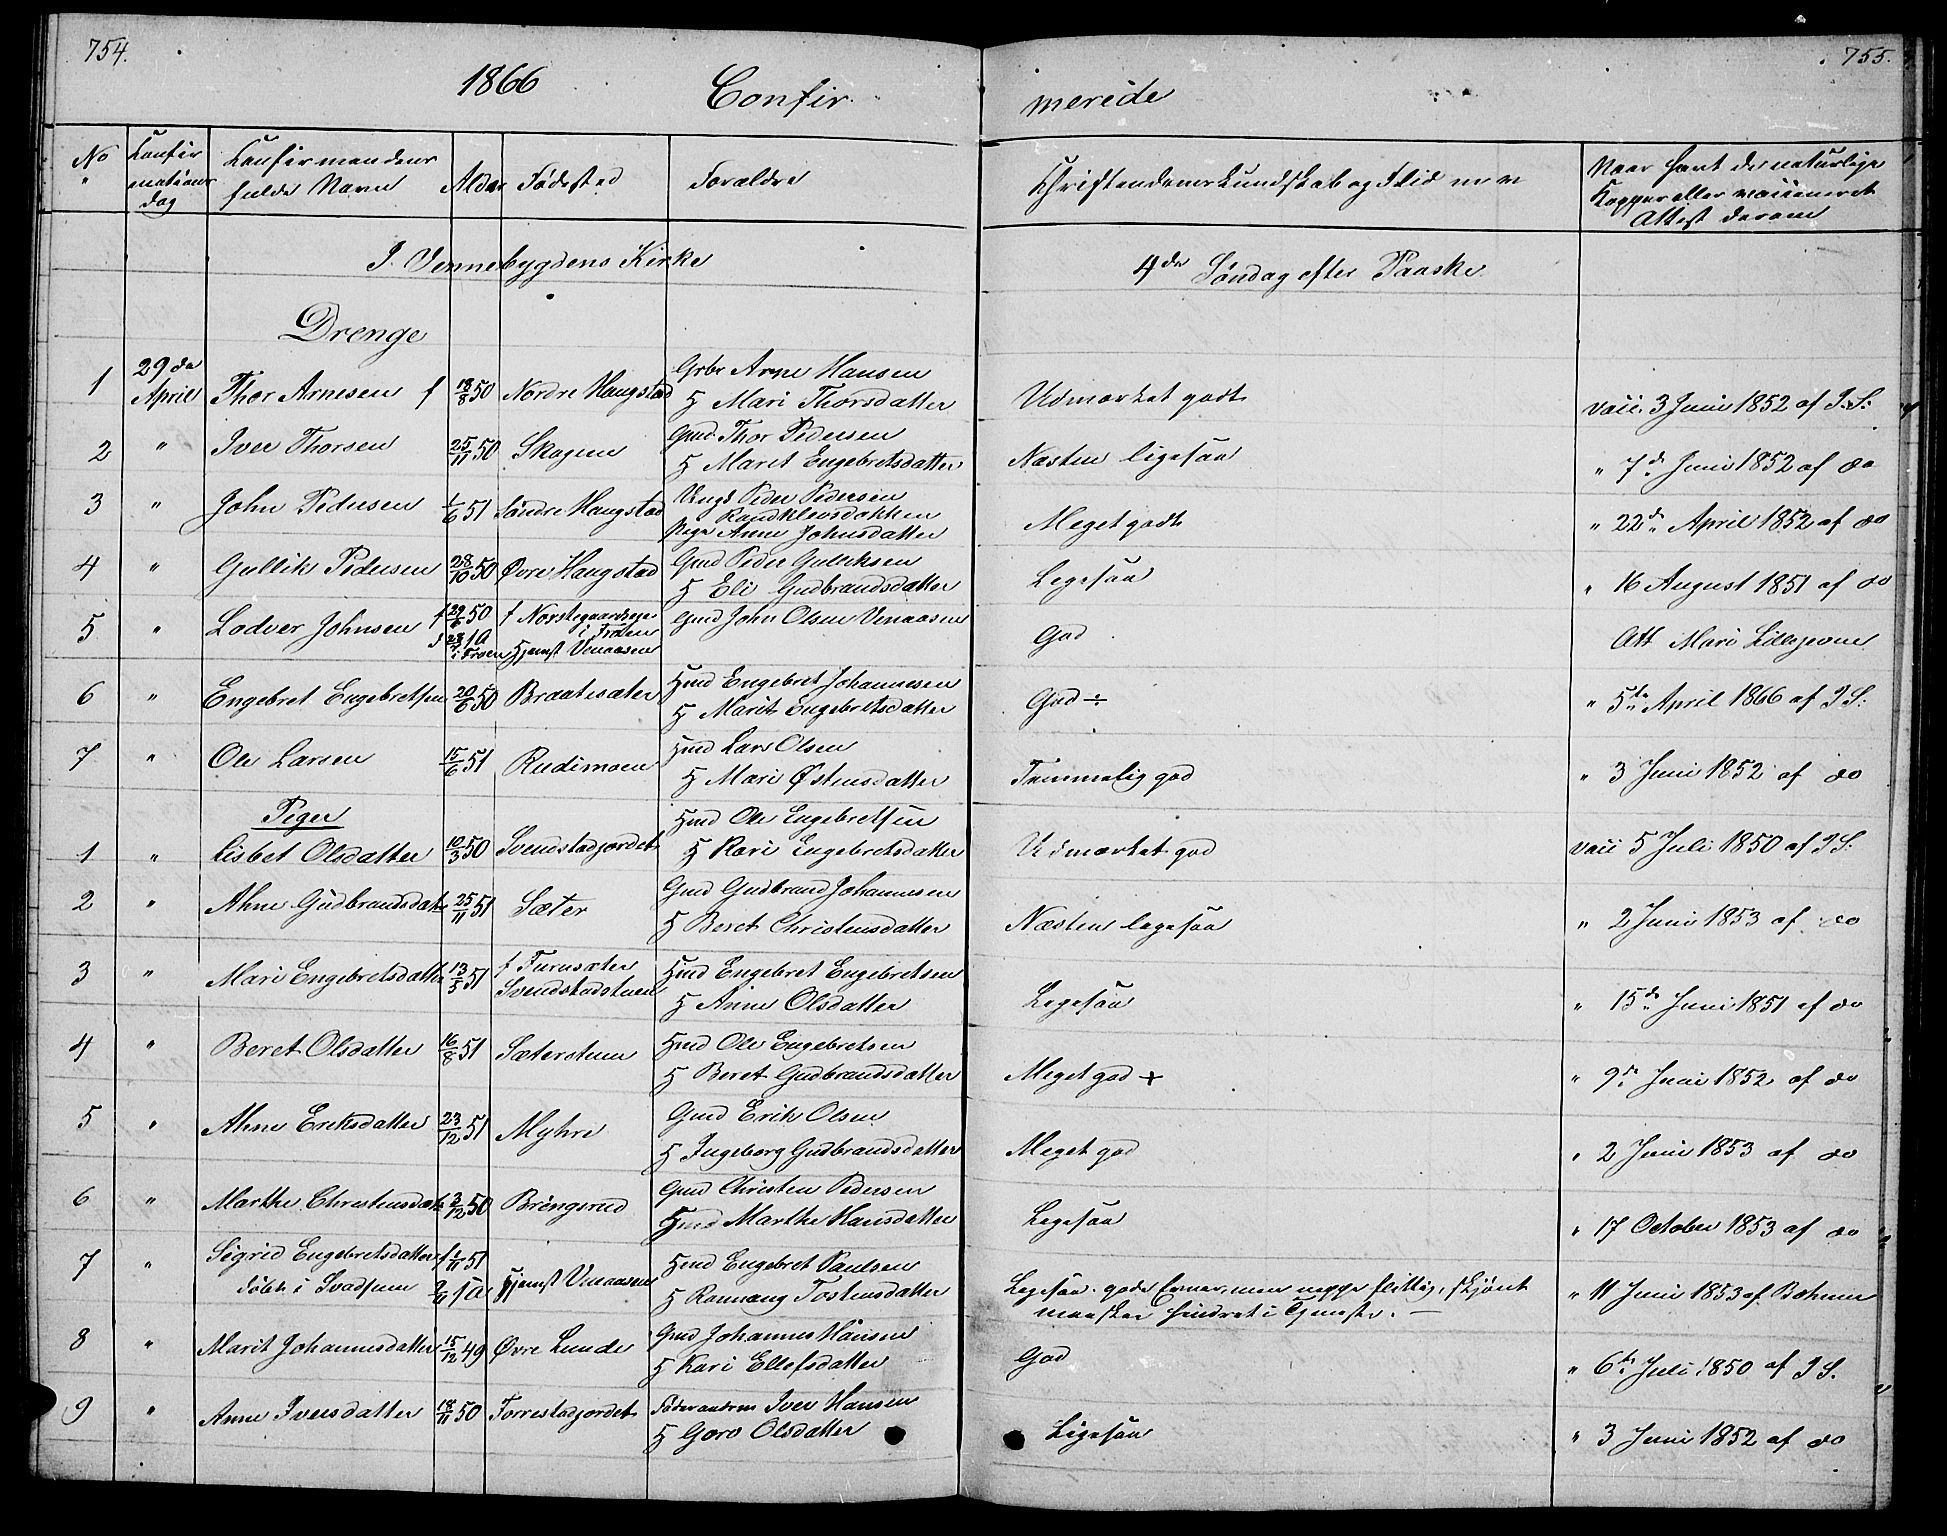 754.
755.
1866 Confirmerede
No
Confirmations dag
Confirmandens fulde Navn
Alder
Fødested
Forældre
Christendomskundskab og Flid m m
Naar havt de naturlige Kopper eller vaccineret Attest derom
I Vennebygdens Kirke
4de Søndag efter Paaske
Drenge
1 29de April Thor Arnesen f 18/8 50 Nordre Haugstad Grbr Arne Hansen H Mari Thorsdatter Udmærket godt vacc. 3 Juni 1852 af J. S:
2 " Iver Thorsen 25/11 50 Skagen Gmd Thor Pedersen H Marit Engebretsdatter Næsten ligesaa " 7de Juni 1852 af do
3 " John Pedersen 1/6 51 Søndre Haugstad Ungk Peder Pedersen Randklevsdokken Pige Anne Johnsdatter Meget godt " 22de April 1852 af do
4 " Gullik Pedersen 28/10 50 Øvre Haugstad Gmd Peder Gulliksen H Eli Gudbrandsdatter Ligesaa " 16 August 1851 af do
5 " Lodver Johnsen f Norstegaardseje i Froen Hjemst Venaasen Gmd John Olsen Venaasen God Att Marö Lillejevne
6 " Engebret Engebretsen 20/6 50 Braatesæter Hmd Engebret Johannesen H Marit Engebretsdatter God ÷ " 5te April 1866 af J S:
7 " Ole Larsen 15/6 51 Rudimoen Hmd Lars Olsen H Mari Østensdatter Temmelig god " 3 Juni 1852 af do
Piger
1 " Lisbet Olsdatter 10/3 50 Svendstadjordet Hmd Ole Engebretsen H Kari Engebretsdatter Udmærket god vacc 5 Juli 1850 af J S:
2 " Ahne Gudbrandsdatr 25/11 51 Sæter Gmd Gudbrand Johannesen H Beret Christensdatter Næsten ligesaa " 2 Juni 1853 af do
3 " Mari Engebretsdatter 13/5 51 f Furusæter Svendstadstuen Hmd Engebret Engebretsen H Anne Olsdatter Ligesaa " 15de Juni 1851 af do
4 " Beret Olsdatter 16/8 51 Sæterstuen Hmd Ole Engebretsen H Beret Gudbrandsdatter Meget god + " 9de Juni 1852 af do
5 " Ahne Eriksdatter 23/12 51 Myhre Gmd Erik Olsen H Ingeborg Gudbrandsdatter Meget god " 2 Juni 1853 af do
6 " Marthe Christensdatr 3/12 50 Bringsrud Gmd Christen Pedersen Hmd Marthe Hansdatter Ligesaa " 17 October 1853 af do
7 " Sigrid Engebretsdatter f 1/11 51 döbt i Svadsum Hjemst Venaasen Hmd Engebret Paulsen H Rannaug Tostensdatter Ligesaa. gode Evner, men neppe flittig, skjønt maaskee hindret i Tjeneste. — " 11 Juni 1853 af Bohmer
8 " Marit Johannesdatter 15/12 49 Øvre Lunde Gmd Johannes Hansen H Kari Ellefsdatter God " 6te Juli 1850 af J S.
9 " Anne Iversdatter 18/11 50 Torrestadjordet Föderaadsm Iver Hansen H Goro Olsdatter Ligesaa " 3 Juni 1852 af do